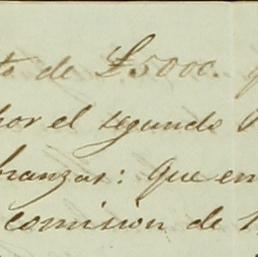 to de £5000. q
por el segundo
branzas: que en
comision de